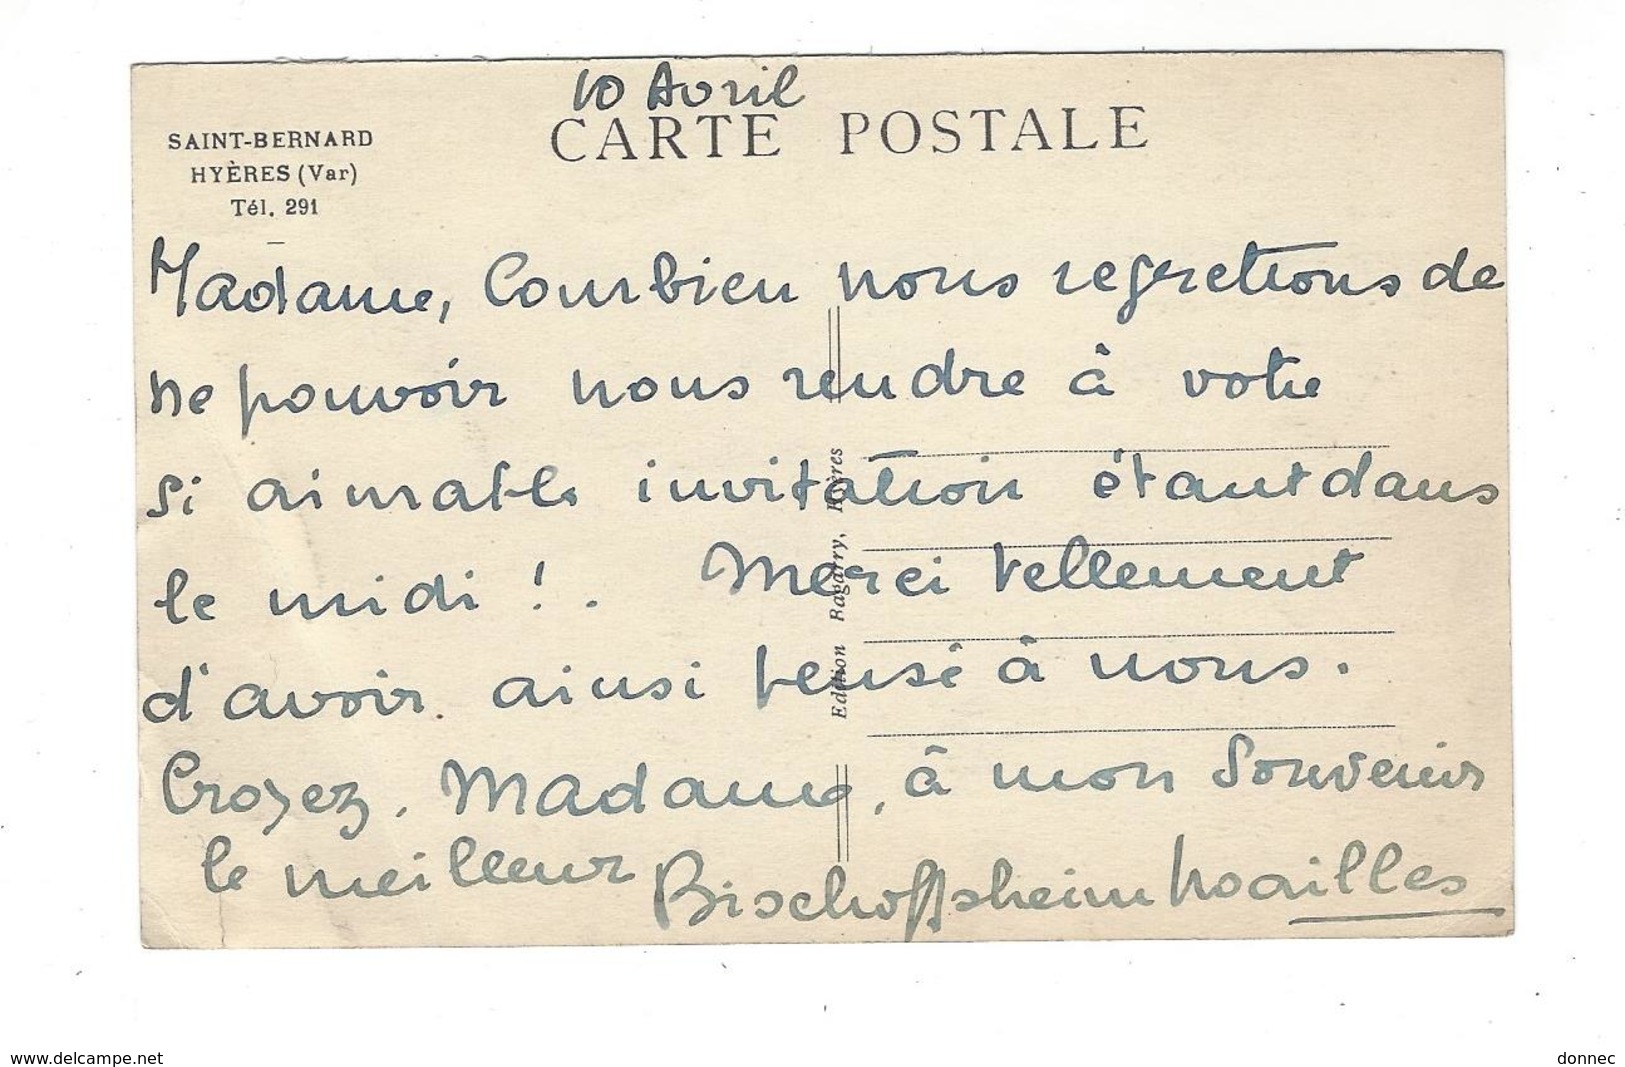 10 Avril
CARTE POSTALE
SAINT-BERNARD
HYÈRES (Var)
Tél. 291
Madame, Combien nous regrettons de
ne pouvoir nous rendre à votre
si aimable invitation étant dans
le midi !. Merci tellement
d'avoir ainsi pensé à nous.
Croyez, Madame, à mon Souvenir
le meilleur Bischoffsheim Noailles
Edition Ragarry, Hyères
www.delcampe.net
donnec